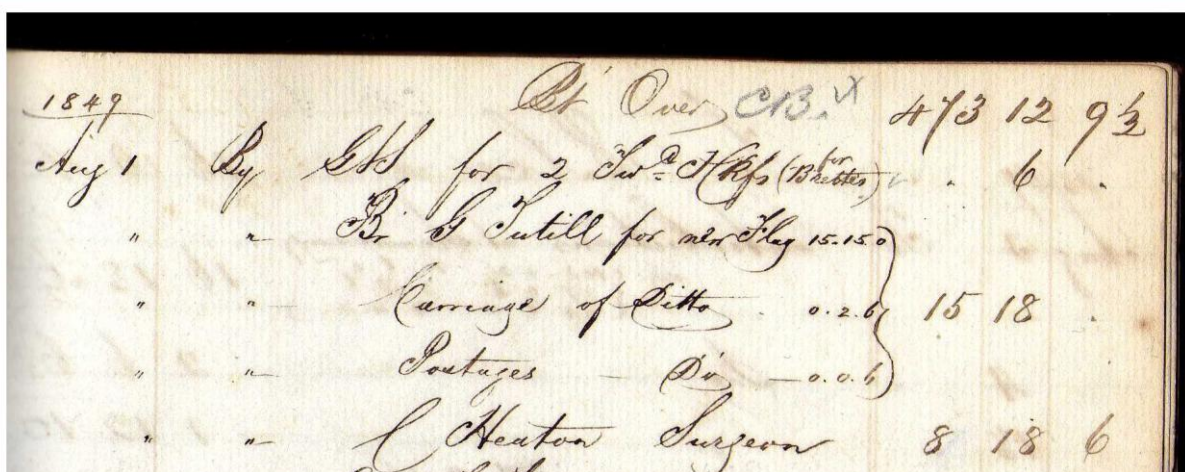 1849 Bt Over CB. 473 12 9½
Aug 1 By G&S for 2 Hkfs (for . 6 .
" " Br G Tutill for new Flag 15.15.0
" " Carriage of Ditto 0.2.6 15 18 .
" " Postages Do 0.0.6
" " C Heaton Surgeon 8 18 6